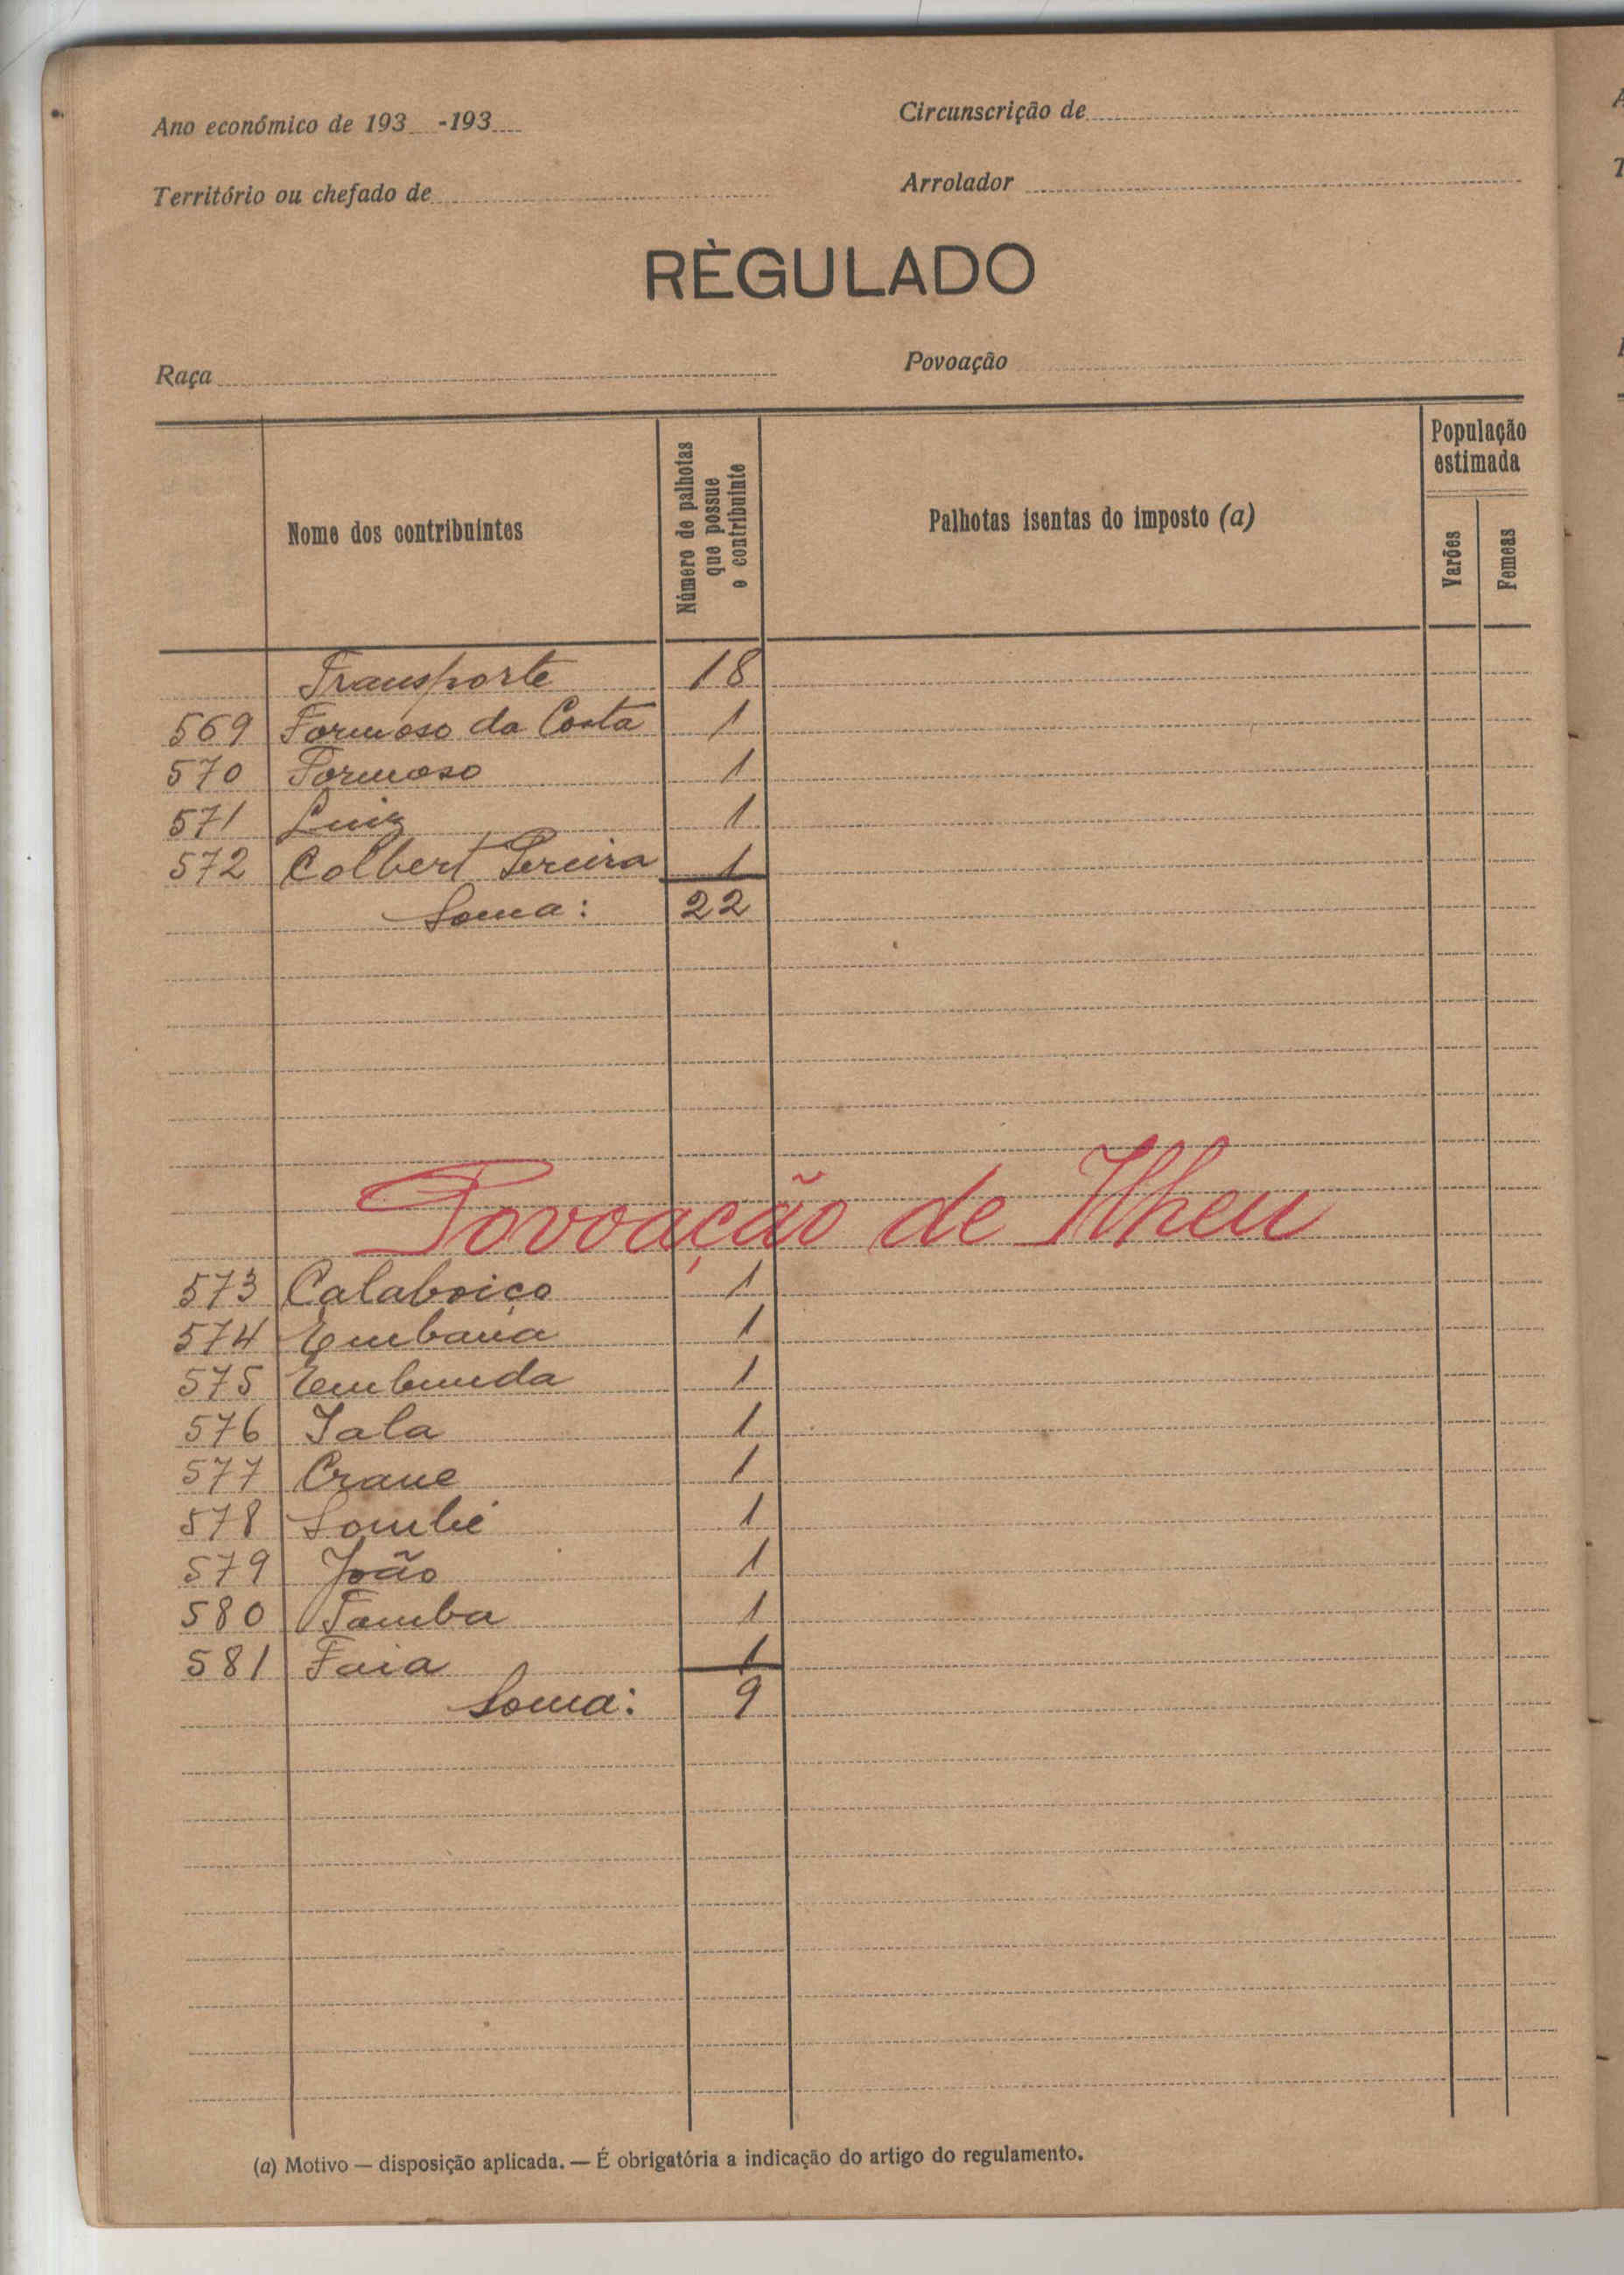 Ano económico de 193 -193
Circunscrição de
Território ou chefado de
Arrolador
RÈGULADO
Raça
Povoação
Nome dos contribuintes
Número de palhotas que possue o contribuinte
Palhotas isentas do imposto (a)
População estimada
Varões
Femeas
Transporte 18
569 Formoso da Costa 1
570 Formoso 1
571 Luiz 1
572 Colbert Pereira 1
Soma: 22
Povoação de Ilheu
573 Calaboiço 1
574 1
575 Embunda 1
576 Iala 1
577 1
578 1
579 João 1
580 Tamba 1
581 Faia 1
Soma: 9
(a) Motivo — disposição aplicada. — É obrigatória a indicação do artigo do regulamento.